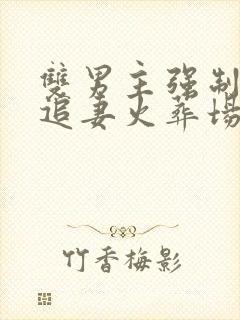 雙男主强制
追妻火葬場
竹香梅影